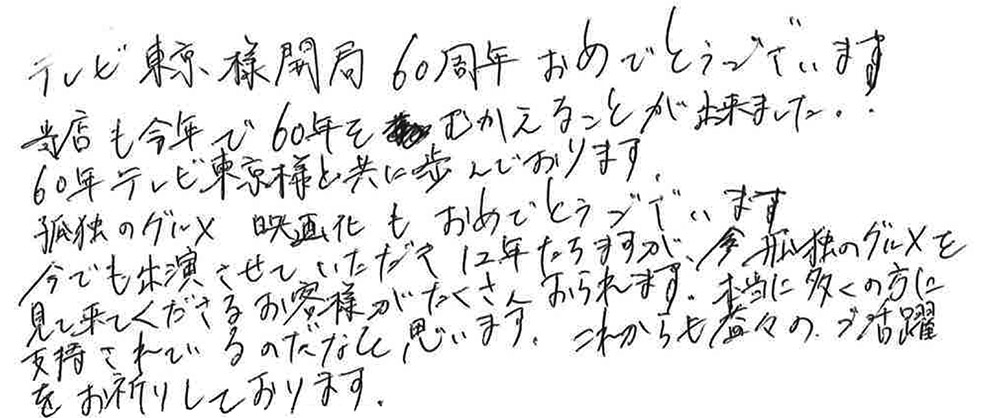 テレビ東京様開局60周年おめでとうございます
当店も今年で60年をむかえることが出来ました。!
60年テレビ東京様と共に歩んでおります。
孤独のグルメ 映画化もおめでとうございます
今でも出演させていただき12年たちますが、今孤独のグルメを
見て来てくださるお客様がたくさんおられます。本当に多くの方に
支持されているのだなと思います。これからも益々のご活躍
をお祈りしております。